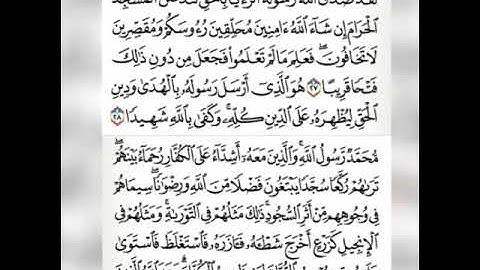 لَّقَدْ صَدَقَ ٱللَّهُ رَسُولَهُ ٱلرُّءْيَا بِٱلْحَقِّ لَتَدْخُلُنَّ ٱلْمَسْجِدَ
ٱلْحَرَامَ إِن شَآءَ ٱللَّهُ ءَامِنِينَ مُحَلِّقِينَ رُءُوسَكُمْ وَمُقَصِّرِينَ
لَا تَخَافُونَ ۖ فَعَلِمَ مَا لَمْ تَعْلَمُوا۟ فَجَعَلَ مِن دُونِ ذَٰلِكَ
فَتْحًا قَرِيبًا ۝٢٧ هُوَ ٱلَّذِىٓ أَرْسَلَ رَسُولَهُۥ بِٱلْهُدَىٰ وَدِينِ
ٱلْحَقِّ لِيُظْهِرَهُۥ عَلَى ٱلدِّينِ كُلِّهِۦ ۚ وَكَفَىٰ بِٱللَّهِ شَهِيدًا ۝٢٨
مُّحَمَّدٌ رَّسُولُ ٱللَّهِ ۚ وَٱلَّذِينَ مَعَهُۥٓ أَشِدَّآءُ عَلَى ٱلْكُفَّارِ رُحَمَآءُ بَيْنَهُمْ ۖ
تَرَىٰهُمْ رُكَّعًا سُجَّدًا يَبْتَغُونَ فَضْلًا مِّنَ ٱللَّهِ وَرِضْوَٰنًا ۖ سِيمَاهُمْ
فِى وُجُوهِهِم مِّنْ أَثَرِ ٱلسُّجُودِ ۚ ذَٰلِكَ مَثَلُهُمْ فِى ٱلتَّوْرَىٰةِ ۚ وَمَثَلُهُمْ فِى
ٱلْإِنجِيلِ كَزَرْعٍ أَخْرَجَ شَطْـَٔهُۥ فَـَٔازَرَهُۥ فَٱسْتَغْلَظَ فَٱسْتَوَىٰ